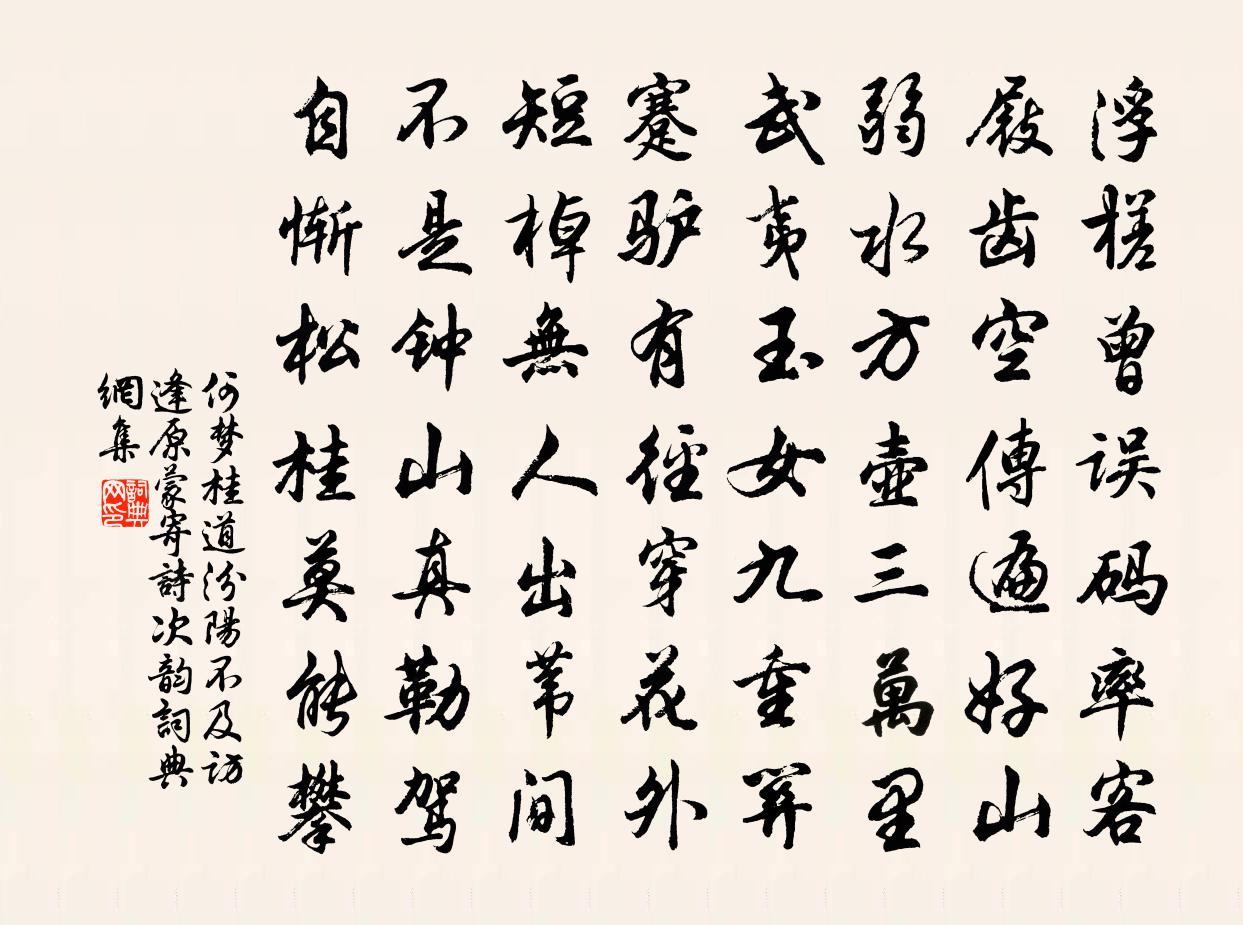 浮槎曾误码率客
屐齿空傳遍好山
弱水方壺三萬里
武夷玉女九重關
蹇驴有徑穿花外
短棹無人出苇间
不是钟山真勒驾
自惭松桂莫能攀
何梦桂道汾陽不及访
逢原蒙寄詩次韵詞典
網集
詞典网印